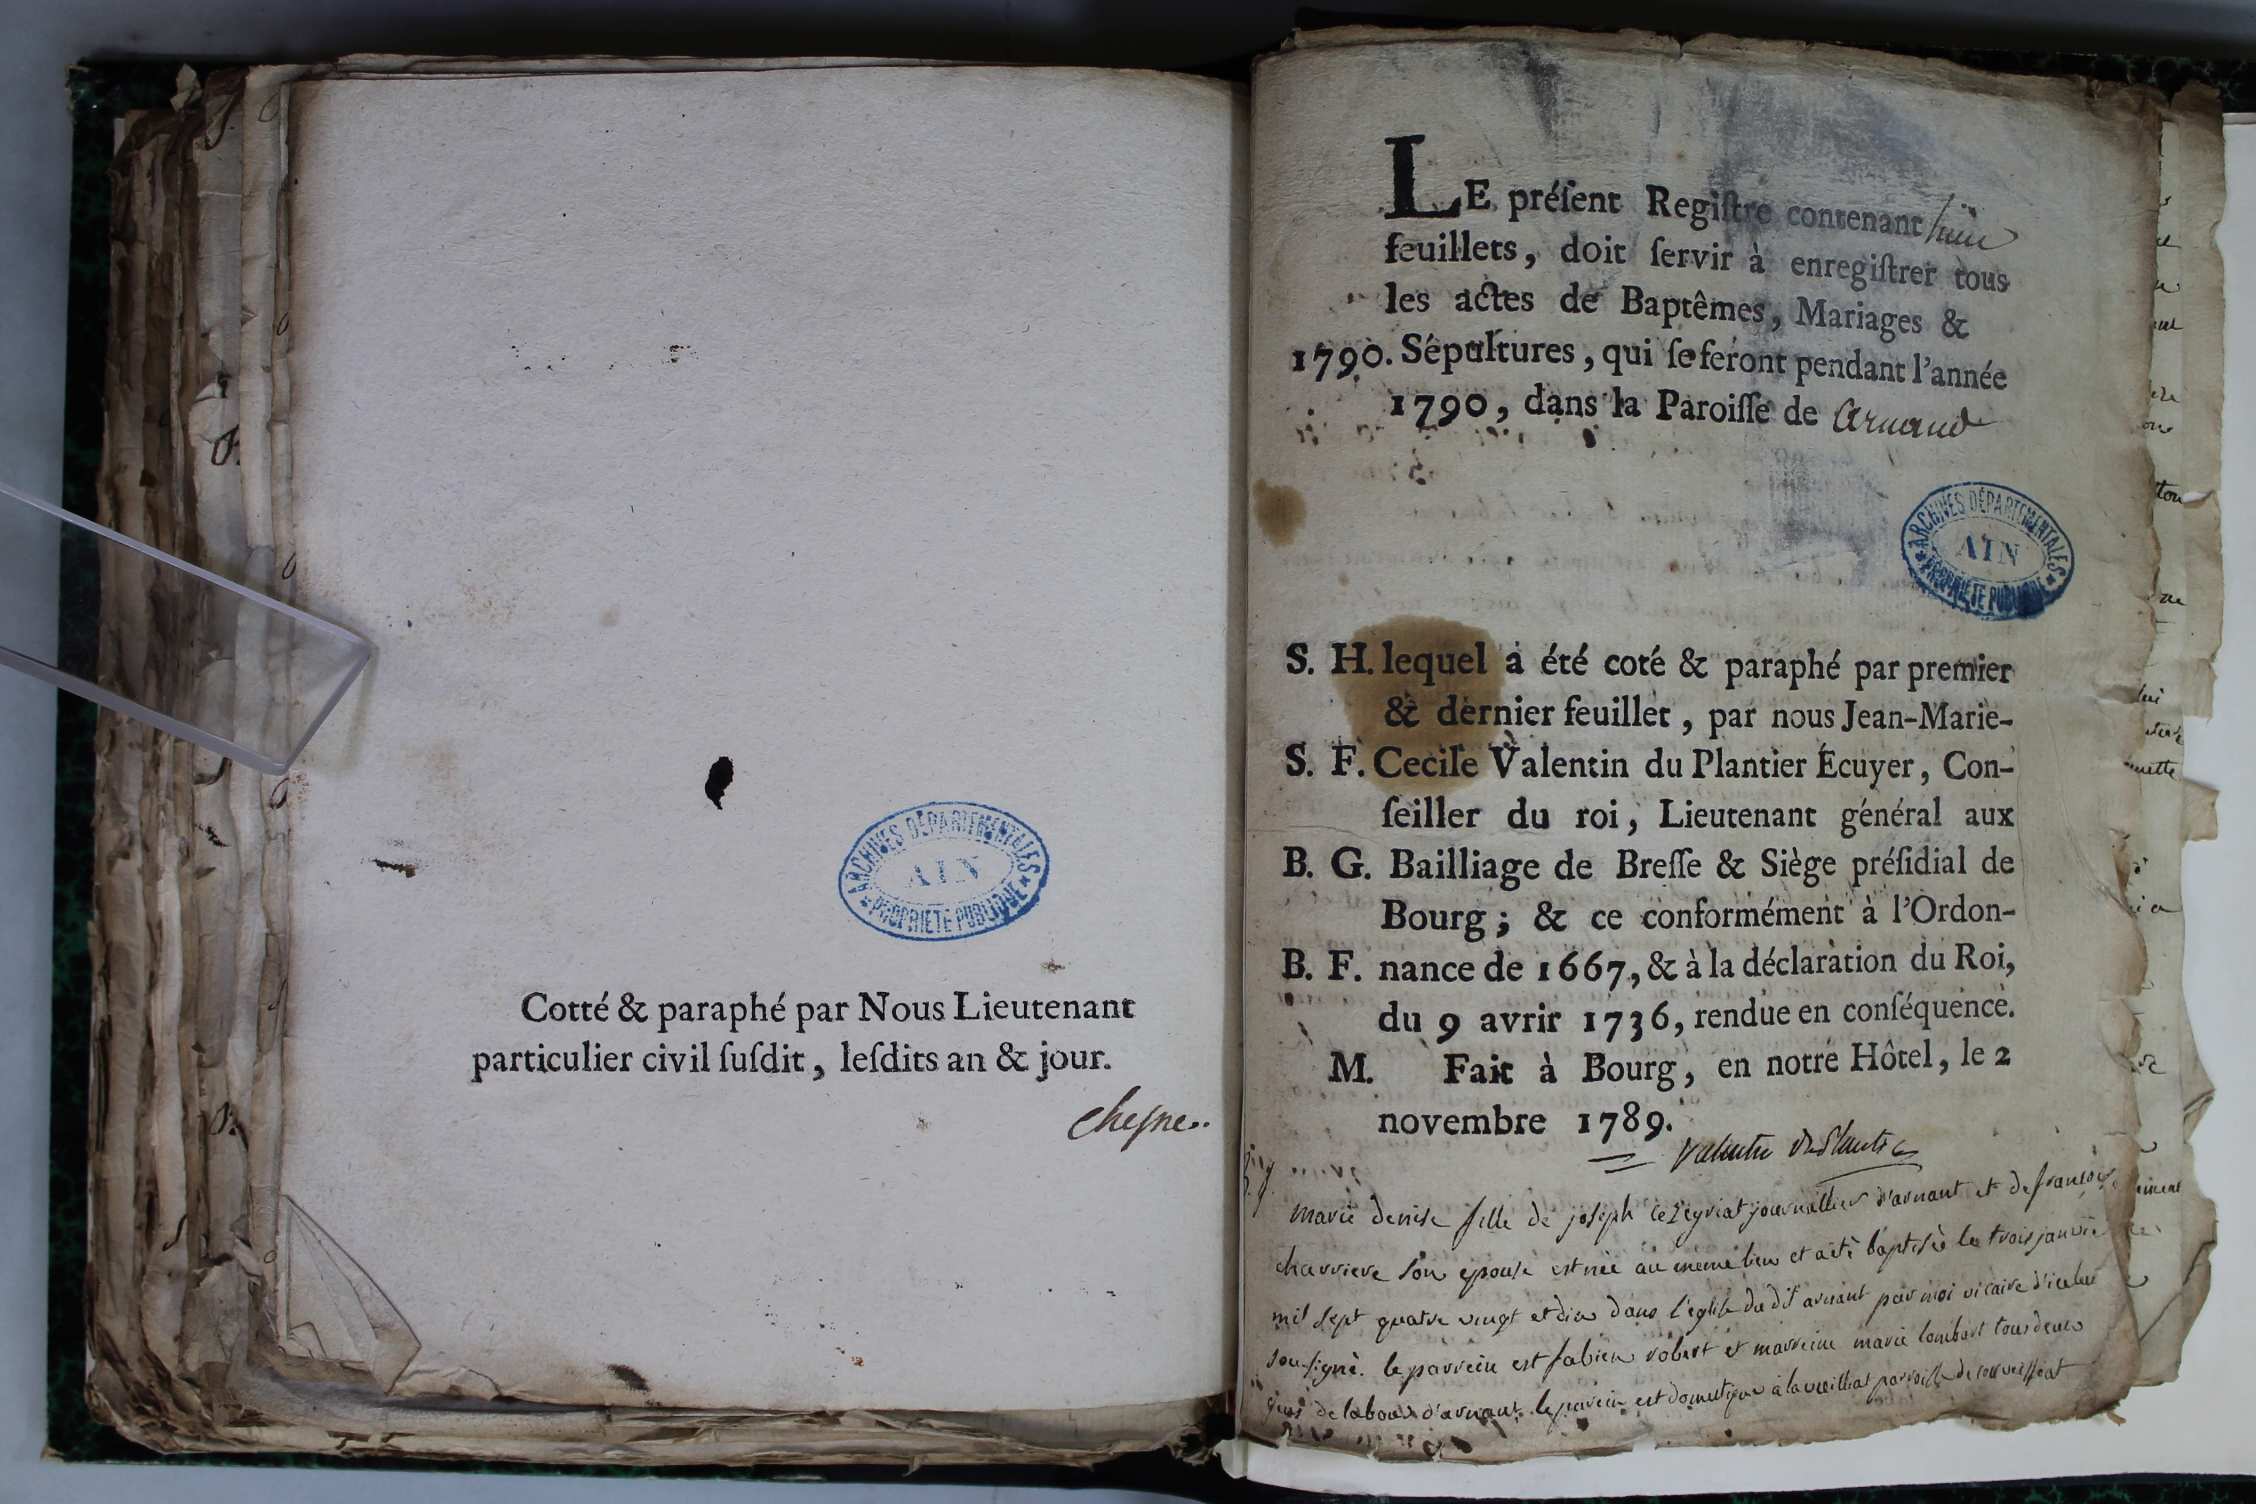 ARCHIVES DÉPARTEMENTALES
AIN
PROPRIÉTÉ PUBLIQUE
Cotté & paraphé par Nous Lieutenant
particulier civil ſuſdit, leſdits an & jour.
cheſne..
LE préſent Regiſtre contenant huit
feuillets, doit ſervir à enregiſtrer tous
les actes de Baptêmes, Mariages &
1790. Sépultures, qui ſe feront pendant l'année
1790, dans la Paroiſſe de Arnand
ARCHIVES DÉPARTEMENTALES
AIN
PROPRIÉTÉ PUBLIQUE
S. H. lequel a été coté & paraphé par premier
& dernier feuillet, par nous Jean-Marie-
S. F. Cecile Valentin du Plantier Écuyer, Con-
ſeiller du roi, Lieutenant général aux
B. G. Bailliage de Breſſe & Siège préſidial de
Bourg; & ce conformément à l'Ordon-
B. F. nance de 1667, & à la déclaration du Roi,
du 9 avrir 1736, rendue en conſéquence.
M. Fait à Bourg, en notre Hôtel, le 2
novembre 1789.
Valentin duPlantier
marie denise fille de joseph ceZeyriat journallier d'arnant et de françoise
charriere son epouse est née au meme lieu et a été baptisée le trois janvier
mil sept quatre vingt et dix dans l'eglise du dit arnant par moi vicaire d'icelui
sousigné. le parrein est fabien robert et marreine marie lombart tous deux
gens de labour d'arnant. le parein est domestique à la parroisse de